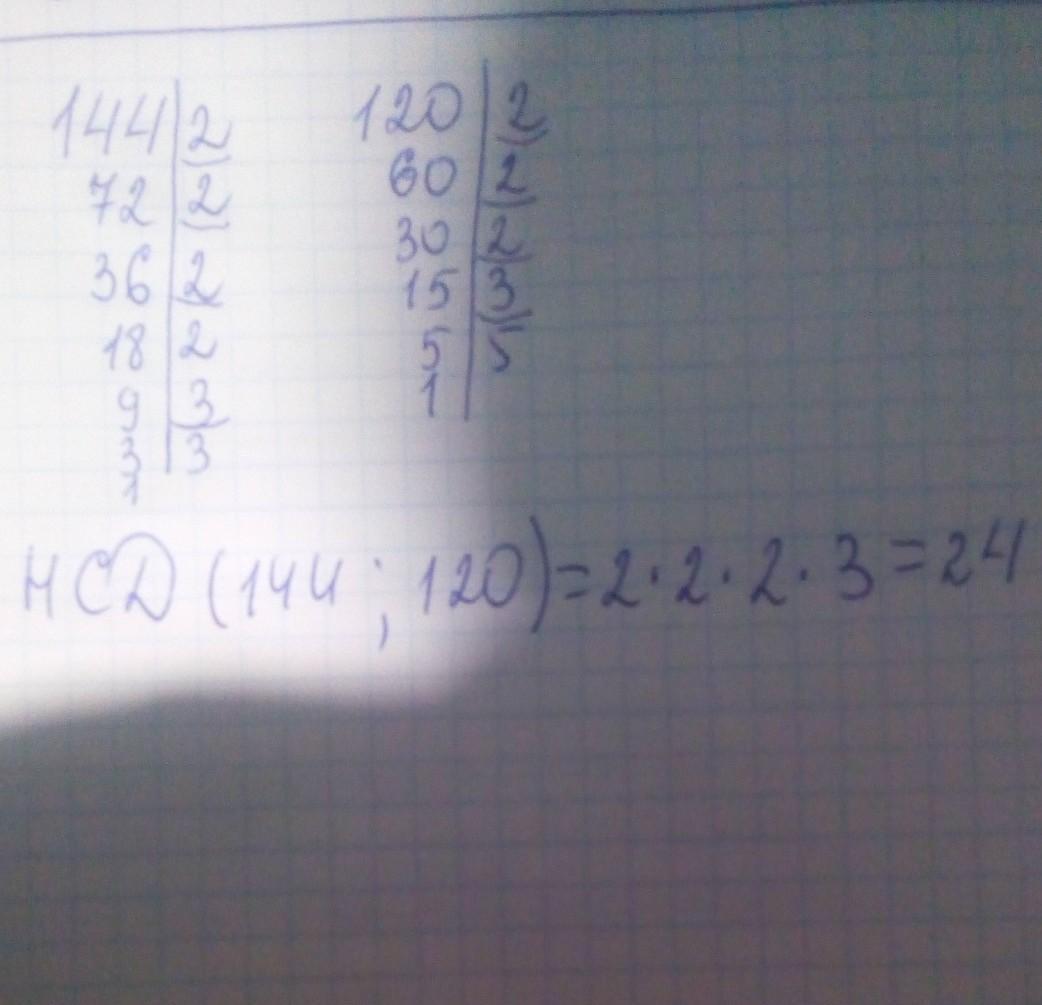 144|2 120|2
72|2 60|2
36|2 30|2
18|2 15|3
9|3 5|5
3|3 1|
1
НСД (144 ; 120) = 2 · 2 · 2 · 3 = 24